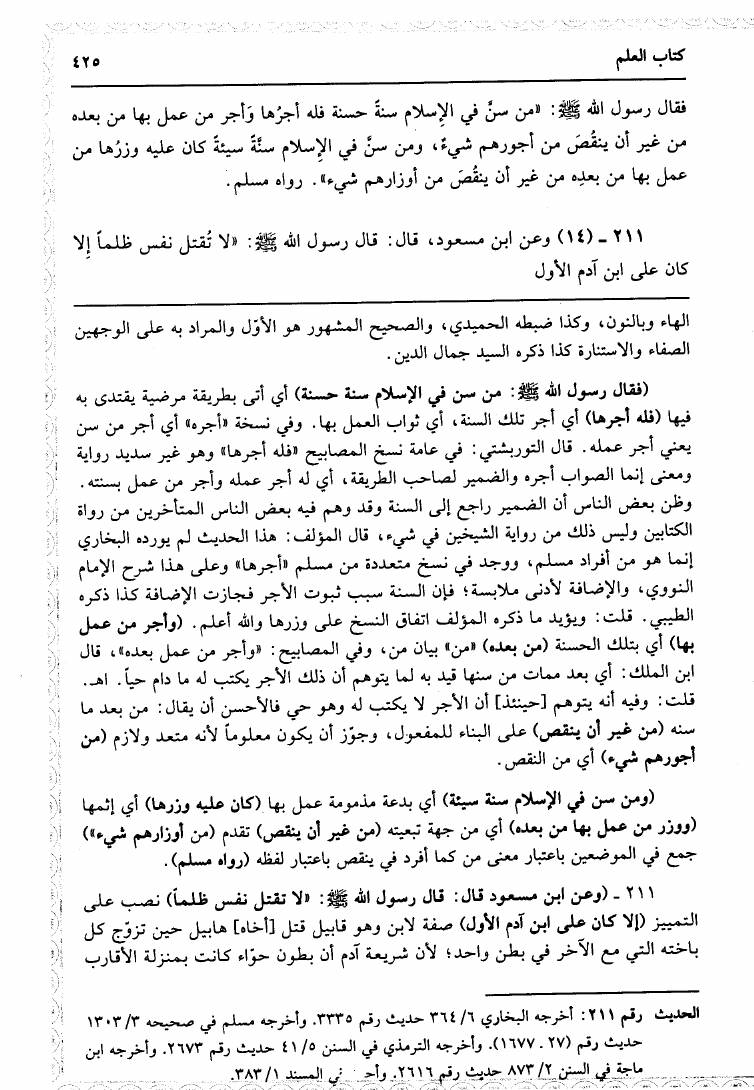 كتاب العلم ٤٢٥
فقال رسول الله ﷺ: «من سنَّ في الإِسلام سنةً حسنة فله أجرُها وَأجر من عمل بها من بعده
من غير أن ينقُصَ من أجورهم شيءٌ، ومن سنَّ في الإِسلام سنَّةً سيئةً كان عليه وزرُها من
عمل بها من بعدِه من غير أن ينقُصَ من أوزارهم شيء». رواه مسلم.
٢١١ ـ (١٤) وعن ابن مسعود، قال: قال رسول الله ﷺ: «لا تُقتل نفس ظلماً إِلا
كان على ابن آدم الأول
الهاء وبالنون، وكذا ضبطه الحميدي، والصحيح المشهور هو الأوّل والمراد به على الوجهين
الصفاء والاستنارة كذا ذكره السيد جمال الدين.
(فقال رسول الله ﷺ: من سن في الإسلام سنة حسنة) أي أتى بطريقة مرضية يقتدى به
فيها (فله أجرها) أي أجر تلك السنة، أي ثواب العمل بها. وفي نسخة «أجره» أي أجر من سن
يعني أجر عمله. قال التوربشتي: في عامة نسخ المصابيح «فله أجرها» وهو غير سديد رواية
ومعنى إنما الصواب أجره والضمير لصاحب الطريقة، أي له أجر عمله وأجر من عمل بسنته.
وظن بعض الناس أن الضمير راجع إلى السنة وقد وهم فيه بعض الناس المتأخرين من رواة
الكتابين وليس ذلك من رواية الشيخين في شيء، قال المؤلف: هذا الحديث لم يورده البخاري
إنما هو من أفراد مسلم، ووجد في نسخ متعددة من مسلم «أجرها» وعلى هذا شرح الإمام
النووي، والإضافة لأدنى ملابسة؛ فإن السنة سبب ثبوت الأجر فجازت الإضافة كذا ذكره
الطيبي. قلت: ويؤيد ما ذكره المؤلف اتفاق النسخ على وزرها والله أعلم. (وأجر من عمل
بها) أي بتلك الحسنة (من بعده) «من» بيان من، وفي المصابيح: «وأجر من عمل بعده»، قال
ابن الملك: أي بعد ممات من سنها قيد به لما يتوهم أن ذلك الأجر يكتب له ما دام حياً. اهـ.
قلت: وفيه أنه يتوهم [حينئذ] أن الأجر لا يكتب له وهو حي فالأحسن أن يقال: من بعد ما
سنه (من غير أن ينقص) على البناء للمفعول، وجوّز أن يكون معلوماً لأنه متعد ولازم (من
أجورهم شيء) أي من النقص.
(ومن سن في الإسلام سنة سيئة) أي بدعة مذمومة عمل بها (كان عليه وزرها) أي إثمها
(ووزر من عمل بها من بعده) أي من جهة تبعيته (من غير أن ينقص) تقدم (من أوزارهم شيء»)
جمع في الموضعين باعتبار معنى من كما أفرد في ينقص باعتبار لفظه (رواه مسلم).
٢١١ ـ (وعن ابن مسعود قال: قال رسول الله ﷺ: «لا تقتل نفس ظلماً) نصب على
التمييز (إلا كان على ابن آدم الأول) صفة لابن وهو قابيل قتل [أخاه] هابيل حين تزوّج كل
باخته التي مع الآخر في بطن واحد؛ لأن شريعة آدم أن بطون حوّاء كانت بمنزلة الأقارب
الحديث رقم ٢١١: أخرجه البخاري ٦/ ٣٦٤ حديث رقم ٣٣٣٥. وأخرجه مسلم في صحيحه ٣/ ١٣٠٣
حديث رقم (٢٧ـ ١٦٧٧). وأخرجه الترمذي في السنن ٥/ ٤١ حديث رقم ٢٦٧٣. وأخرجه ابن
ماجة في السنن ٢/ ٨٧٣ حديث رقم ٢٦١٦. المسند ١/ ٣٨٣.